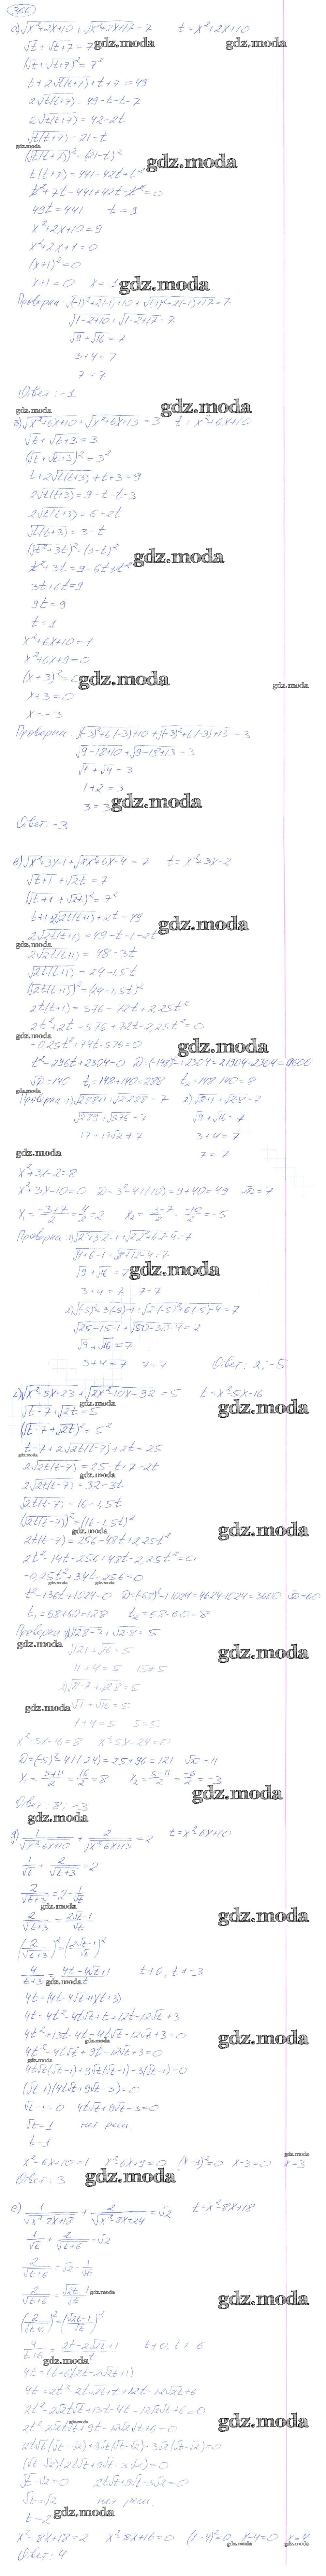 366
а) √x²+2x+10 + √x²+2x+17 = 7   t = x²+2x+10
√t + √t+7 = 7
gdz.moda
(√t + √t+7)² = 7²
t + 2√t(t+7) + t + 7 = 49
2√t(t+7) = 49 - t - t - 7
2√t(t+7) = 42 - 2t
√t(t+7) = 21 - t
gdz.moda
(√t(t+7))² = (21-t)²
gdz.moda
t(t+7) = 441 - 42t + t²
t² + 7t - 441 + 42t - t² = 0
49t = 441   t = 9
x²+2x+10 = 9
x²+2x+1 = 0
(x+1)² = 0
x+1 = 0   x = -1
gdz.moda
Проверка: √(-1)²+2(-1)+10 + √(-1)²+2(-1)+17 = 7
√1-2+10 + √1-2+17 = 7
√9 + √16 = 7
3+4 = 7
7 = 7
Ответ: -1
gdz.moda
gdz.moda
б) √x²+6x+10 + √x²+6x+13 = 3   t = x²+6x+10
√t + √t+3 = 3
(√t + √t+3)² = 3²
t + 2√t(t+3) + t + 3 = 9
2√t(t+3) = 9 - t - t - 3
2√t(t+3) = 6 - 2t
√t(t+3) = 3 - t
(√t²+3t)² = (3-t)²
gdz.moda
t² + 3t = 9 - 6t + t²
3t + 6t = 9
9t = 9
t = 1
x²+6x+10 = 1
x²+6x+9 = 0
(x+3)² = 0
gdz.moda
gdz.moda
x+3 = 0
x = -3
Проверка: √(-3)²+6(-3)+10 + √(-3)²+6(-3)+13 = 3
√9-18+10 + √9-18+13 = 3
√1 + √4 = 3
1+2 = 3
3 = 3
gdz.moda
Ответ: -3
в) √x²+3x-1 + √2x²+6x-4 = 7   t = x²+3x-2
√t+1 + √2t = 7
(√t+1 + √2t)² = 7²
t+1+2√2t(t+1) + 2t = 49
gdz.moda
2√2t(t+1) = 49 - t - 1 - 2t
gdz.moda
2√2t(t+1) = 48 - 3t
√2t(t+1) = 24 - 1,5t
(√2t(t+1))² = (24-1,5t)²
2t(t+1) = 576 - 72t + 2,25t²
2t² + 2t - 576 + 72t - 2,25t² = 0
gdz.moda
-0,25t² + 74t - 576 = 0
gdz.moda
t² - 296t + 2304 = 0   D = (-148)² - 1·2304 = 21904 - 2304 = 19600
√D = 140   t₁ = 148+140 = 288   t₂ = 148-140 = 8
Проверка: 1) √288+1 + √2·288 = 7   2) √8+1 + √2·8 = 7
√289 + √576 = 7   √9 + √16 = 7
17+17√2 ≠ 7   3+4 = 7
7 = 7
gdz.moda
x²+3x-2 = 8
x²+3x-10 = 0   D = 3²-4·1(-10) = 9+40 = 49   √D = 7
x₁ = -3+7/2 = 4/2 = 2   x₂ = -3-7/2 = -10/2 = -5
Проверка: 1) √2²+3·2-1 + √2·2²+6·2-4 = 7
√4+6-1 + √8+12-4 = 7
√9 + √16 = 7
gdz.moda
3+4 = 7   7 = 7
2) √(-5)²+3(-5)-1 + √2(-5)²+6(-5)-4 = 7
√25-15-1 + √50-30-4 = 7
√9 + √16 = 7
3+4 = 7   7 = 7   Ответ: 2; -5
г) √x²-5x-23 + √2x²-10x-32 = 5   t = x²-5x-16
gdz.moda
√t-7 + √2t = 5
gdz.moda
(√t-7 + √2t)² = 5²
t-7+2√2t(t-7) + 2t = 25
gdz.moda
2√2t(t-7) = 25 - t + 7 - 2t
gdz.moda
2√2t(t-7) = 32 - 3t
√2t(t-7) = 16 - 1,5t
(√2t(t-7))² = (16-1,5t)²
gdz.moda
gdz.moda
2t(t-7) = 256 - 48t + 2,25t²
2t² - 14t - 256 + 48t - 2,25t² = 0
-0,25t² + 34t - 256 = 0
gdz.moda
gdz.moda
t² - 136t + 1024 = 0   D = (-68)² - 1·1024 = 4624 - 1024 = 3600   √D = 60
t₁ = 68+60 = 128   t₂ = 68-60 = 8
gdz.moda
gdz.moda
√121 + √16 = 5
2) √8-7 + √2·8 = 5
gdz.moda
√1 + √16 = 5
1+4 = 5   5 = 5
x²-5x-16 = 8   x²-5x-24 = 0
D = (-5)²-4·1(-24) = 25+96 = 121   √D = 11
x₁ = 5+11/2 = 16/2 = 8   x₂ = 5-11/2 = -6/2 = -3
gdz.moda
Ответ: 8; -3
gdz.moda
д) 1/√x²-6x+10 + 2/√x²-6x+13 = 2   t = x²-6x+10
1/√t + 2/√t+3 = 2
2/√t+3 = 2 - 1/√t
gdz.moda
gdz.moda
2/√t+3 = 2√t-1/√t
(2/√t+3)² = (2√t-1/√t)²
4/t+3 = 4t-4√t+1/t   t≠0, t≠-3
gdz.moda
4t = (4t-4√t+1)(t+3)
4t = 4t² - 4t√t + t + 12t - 12√t + 3
4t² + 13t - 4t - 4t√t - 12√t + 3 = 0
gdz.moda
gdz.moda
4t² - 4t√t + 9t - 12√t + 3 = 0
gdz.moda
4t√t(√t-1) + 9√t(√t-1) - 3(√t-1) = 0
(√t-1)(4t√t+9√t-3) = 0
√t-1 = 0   4t√t+9√t-3 = 0
√t = 1   нет реш.
t = 1
gdz.moda
x²-6x+10 = 1   x²-6x+9 = 0   (x-3)² = 0   x-3 = 0   x = 3
Ответ: 3
gdz.moda
е) 1/√x²-8x+18 + 2/√x²-8x+24 = √2   t = x²-8x+18
1/√t + 2/√t+6 = √2
2/√t+6 = √2 - 1/√t
2/√t+6 = √2t-1/√t
gdz.moda
gdz.moda
(2/√t+6)² = (√2t-1/√t)²
4/t+6 = 2t-2√2t+1/t   t≠0, t≠-6
gdz.moda
4t = (t+6)(2t-2√2t+1)
4t = 2t² - 2t√2t + t + 12t - 12√2t + 6
2t² - 2√2t√t + 13t - 4t - 12√2√t + 6 = 0
gdz.moda
gdz.moda
2t² - 2√2t√t + 9t - 12√2√t + 6 = 0
2t√t(√t-√2) + 9√t(√t-√2) - 3√2(√t-√2) = 0
(√t-√2)(2t√t+9√t-3√2) = 0
√t-√2 = 0   2t√t+9√t-3√2 = 0
√t = √2   нет реш.
t = 2
gdz.moda
x²-8x+18 = 2   x²-8x+16 = 0   (x-4)² = 0   x-4 = 0   x = 4
gdz.moda
gdz.moda
Ответ: 4